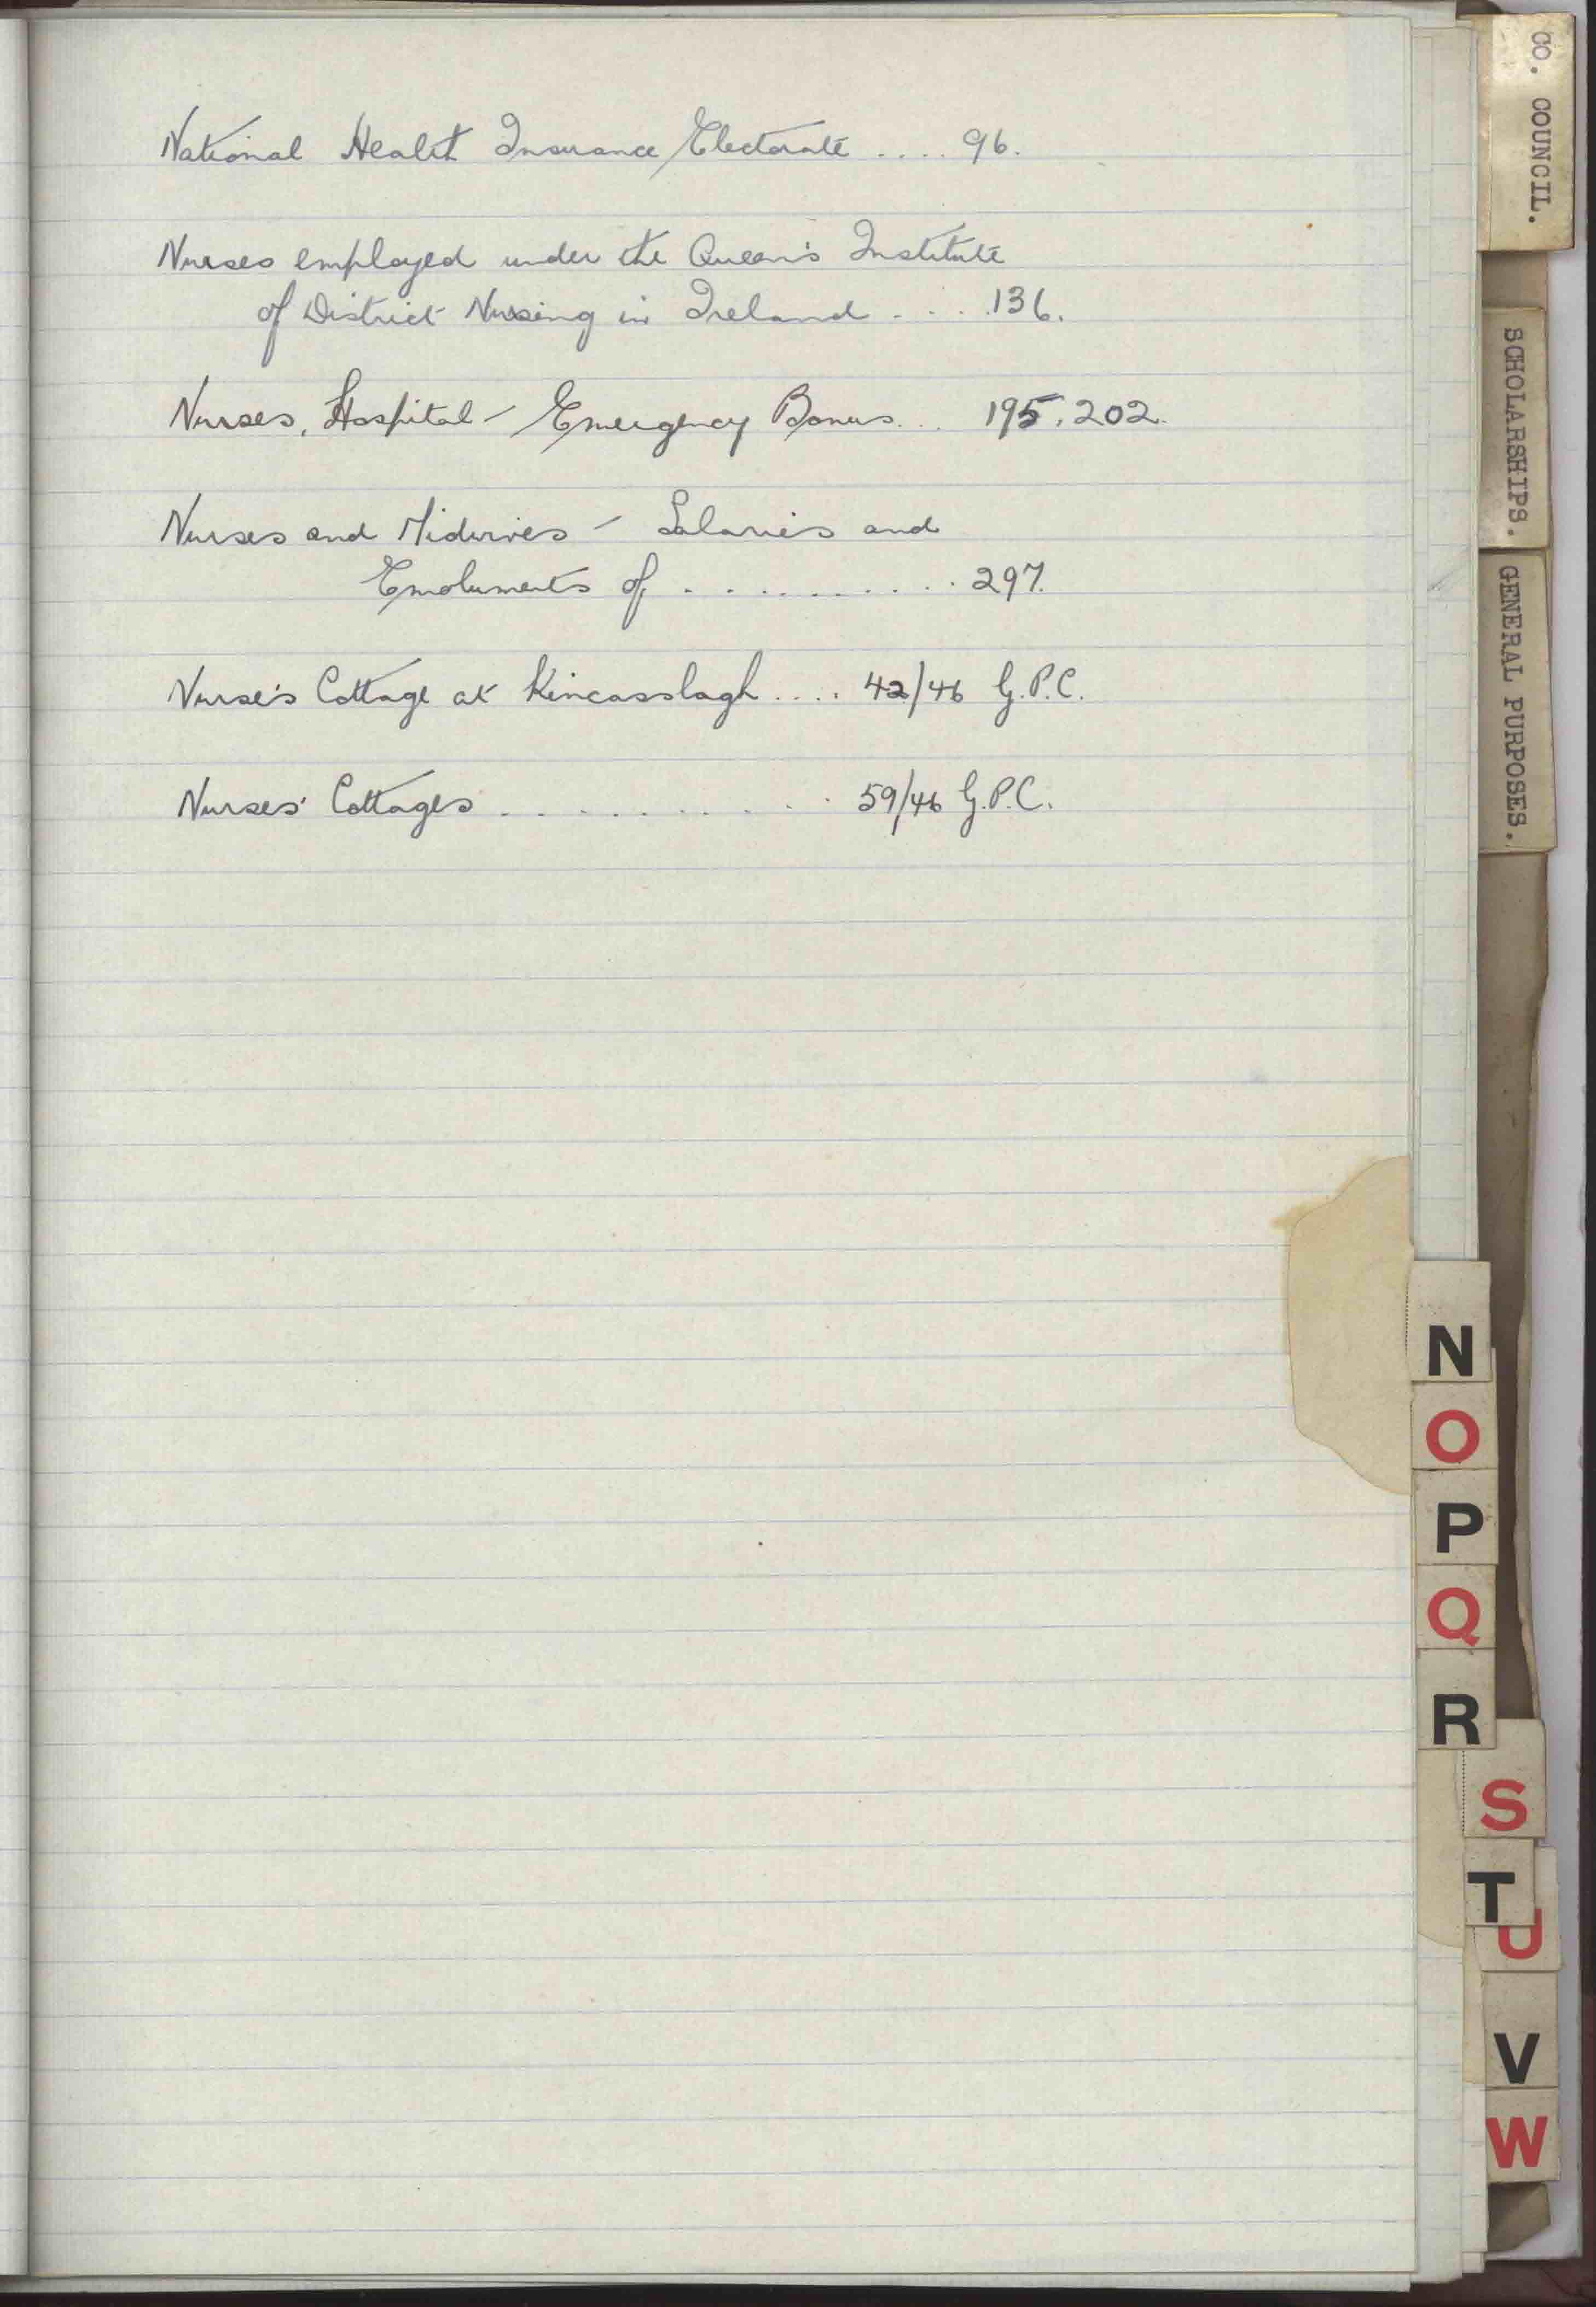 National Health Insurance Electorate .... 96.
Nurses employed under the Queen's Institute
of District Nursing in Ireland .... 136.
Nurses, Hospital - Emergency Bonus... 195, 202.
Nurses and Midwives - Salaries and
Emoluments of ........... 297.
Nurse's Cottage at Kincasslagh .... 42/46 G.P.C.
Nurses' Cottages .......... 59/46 G.P.C.
CO. COUNCIL.
SCHOLARSHIPS.
GENERAL PURPOSES.
N
O
P
Q
R
S
T
U
V
W